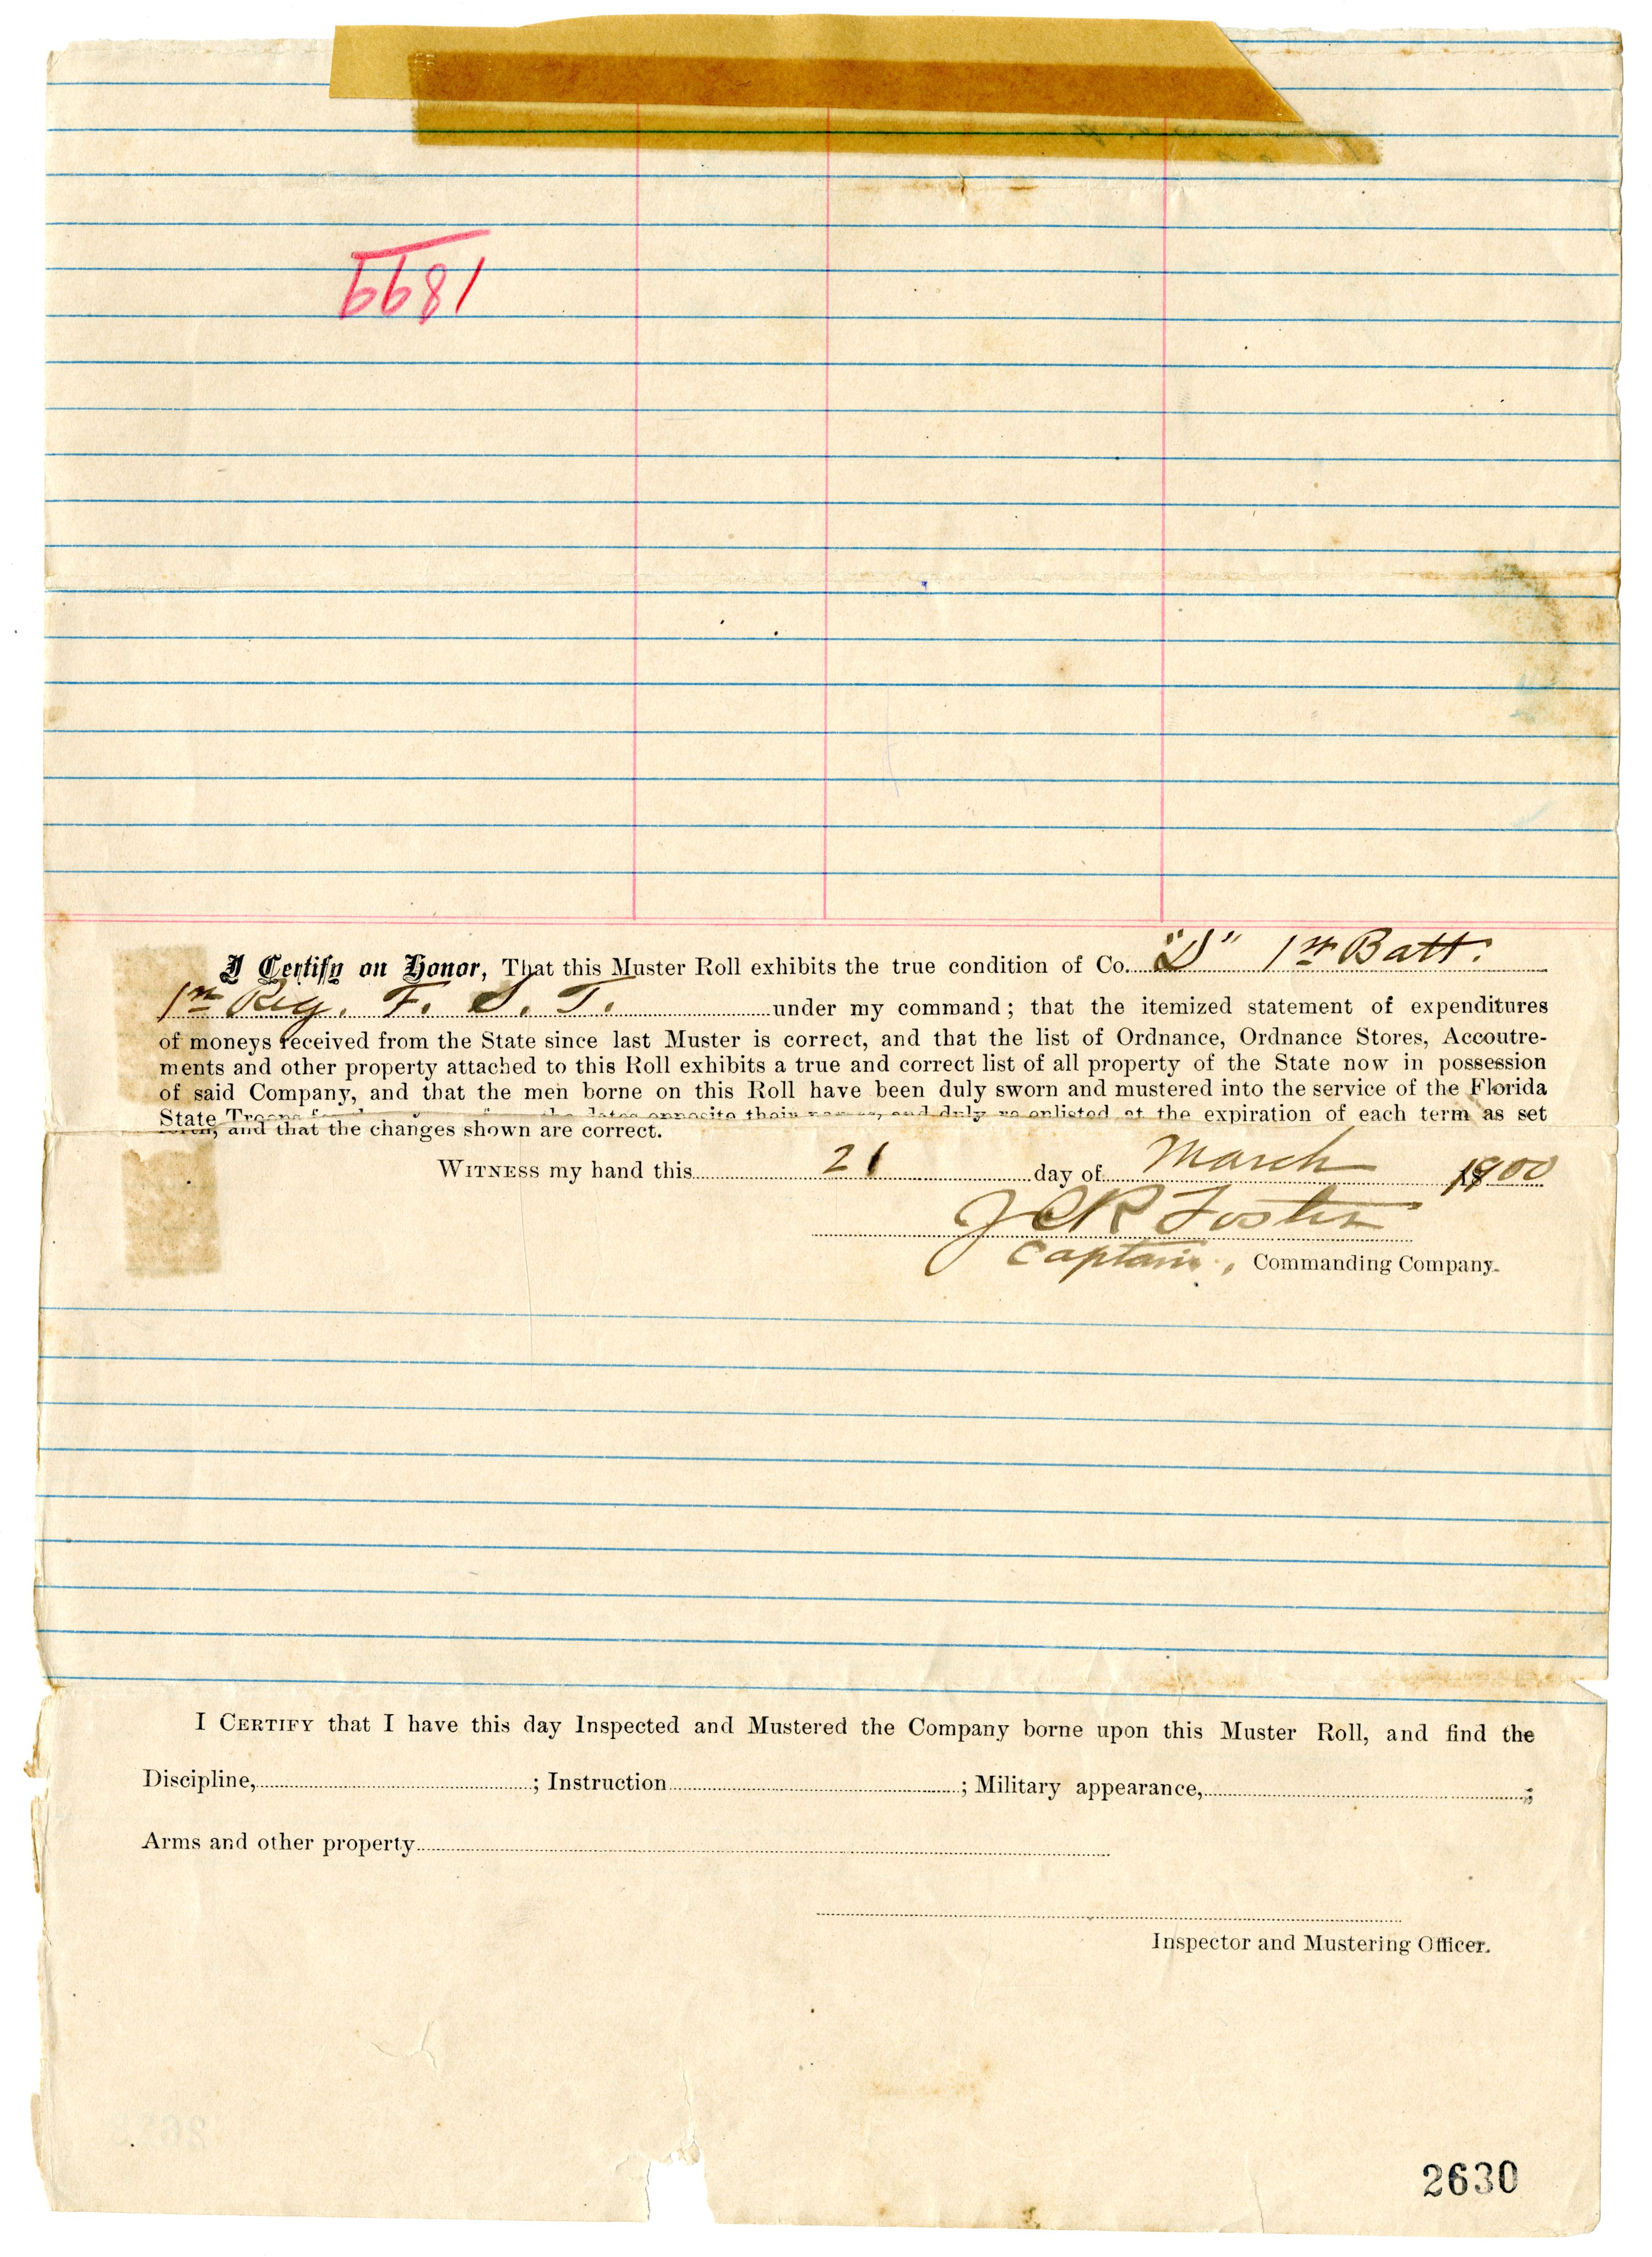 1899
I Certify on Honor, That this Muster Roll exhibits the true condition of Co. "D" 1st Batt.
1st Reg. F. S. T. under my command; that the itemized statement of expenditures
of moneys received from the State since last Muster is correct, and that the list of Ordnance, Ordnance Stores, Accoutre-
ments and other property attached to this Roll exhibits a true and correct list of all property of the State now in possession
of said Company, and that the men borne on this Roll have been duly sworn and mustered into the service of the Florida
State Troops the dates opposite their names, and duly re-enlisted at the expiration of each term as set
forth, and that the changes shown are correct.
WITNESS my hand this 21 day of March 1900
JCR Foster
Captain, Commanding Company.
I CERTIFY that I have this day Inspected and Mustered the Company borne upon this Muster Roll, and find the
Discipline, ; Instruction ; Military appearance, ;
Arms and other property
Inspector and Mustering Officer.
2630